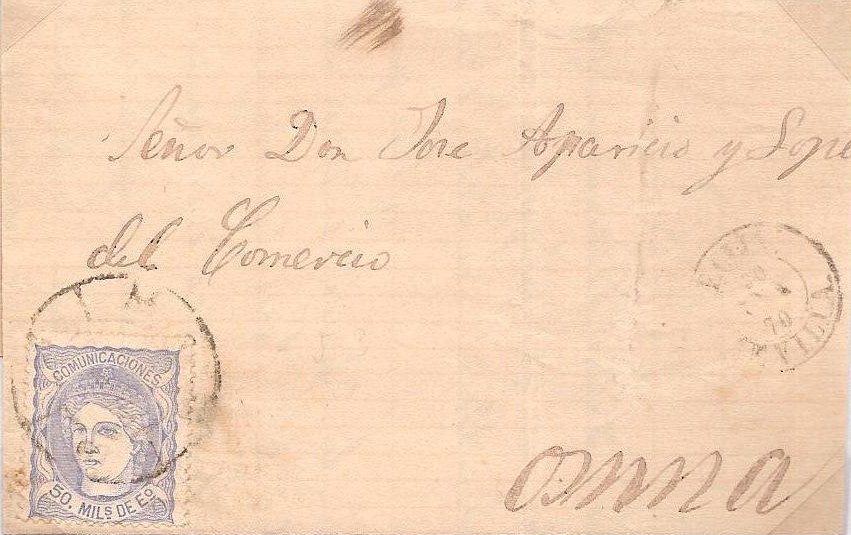 Señor Don Jose Aparicio y Lope
del Comercio
COMUNICACIONES
50. MILS DE EO
20
70